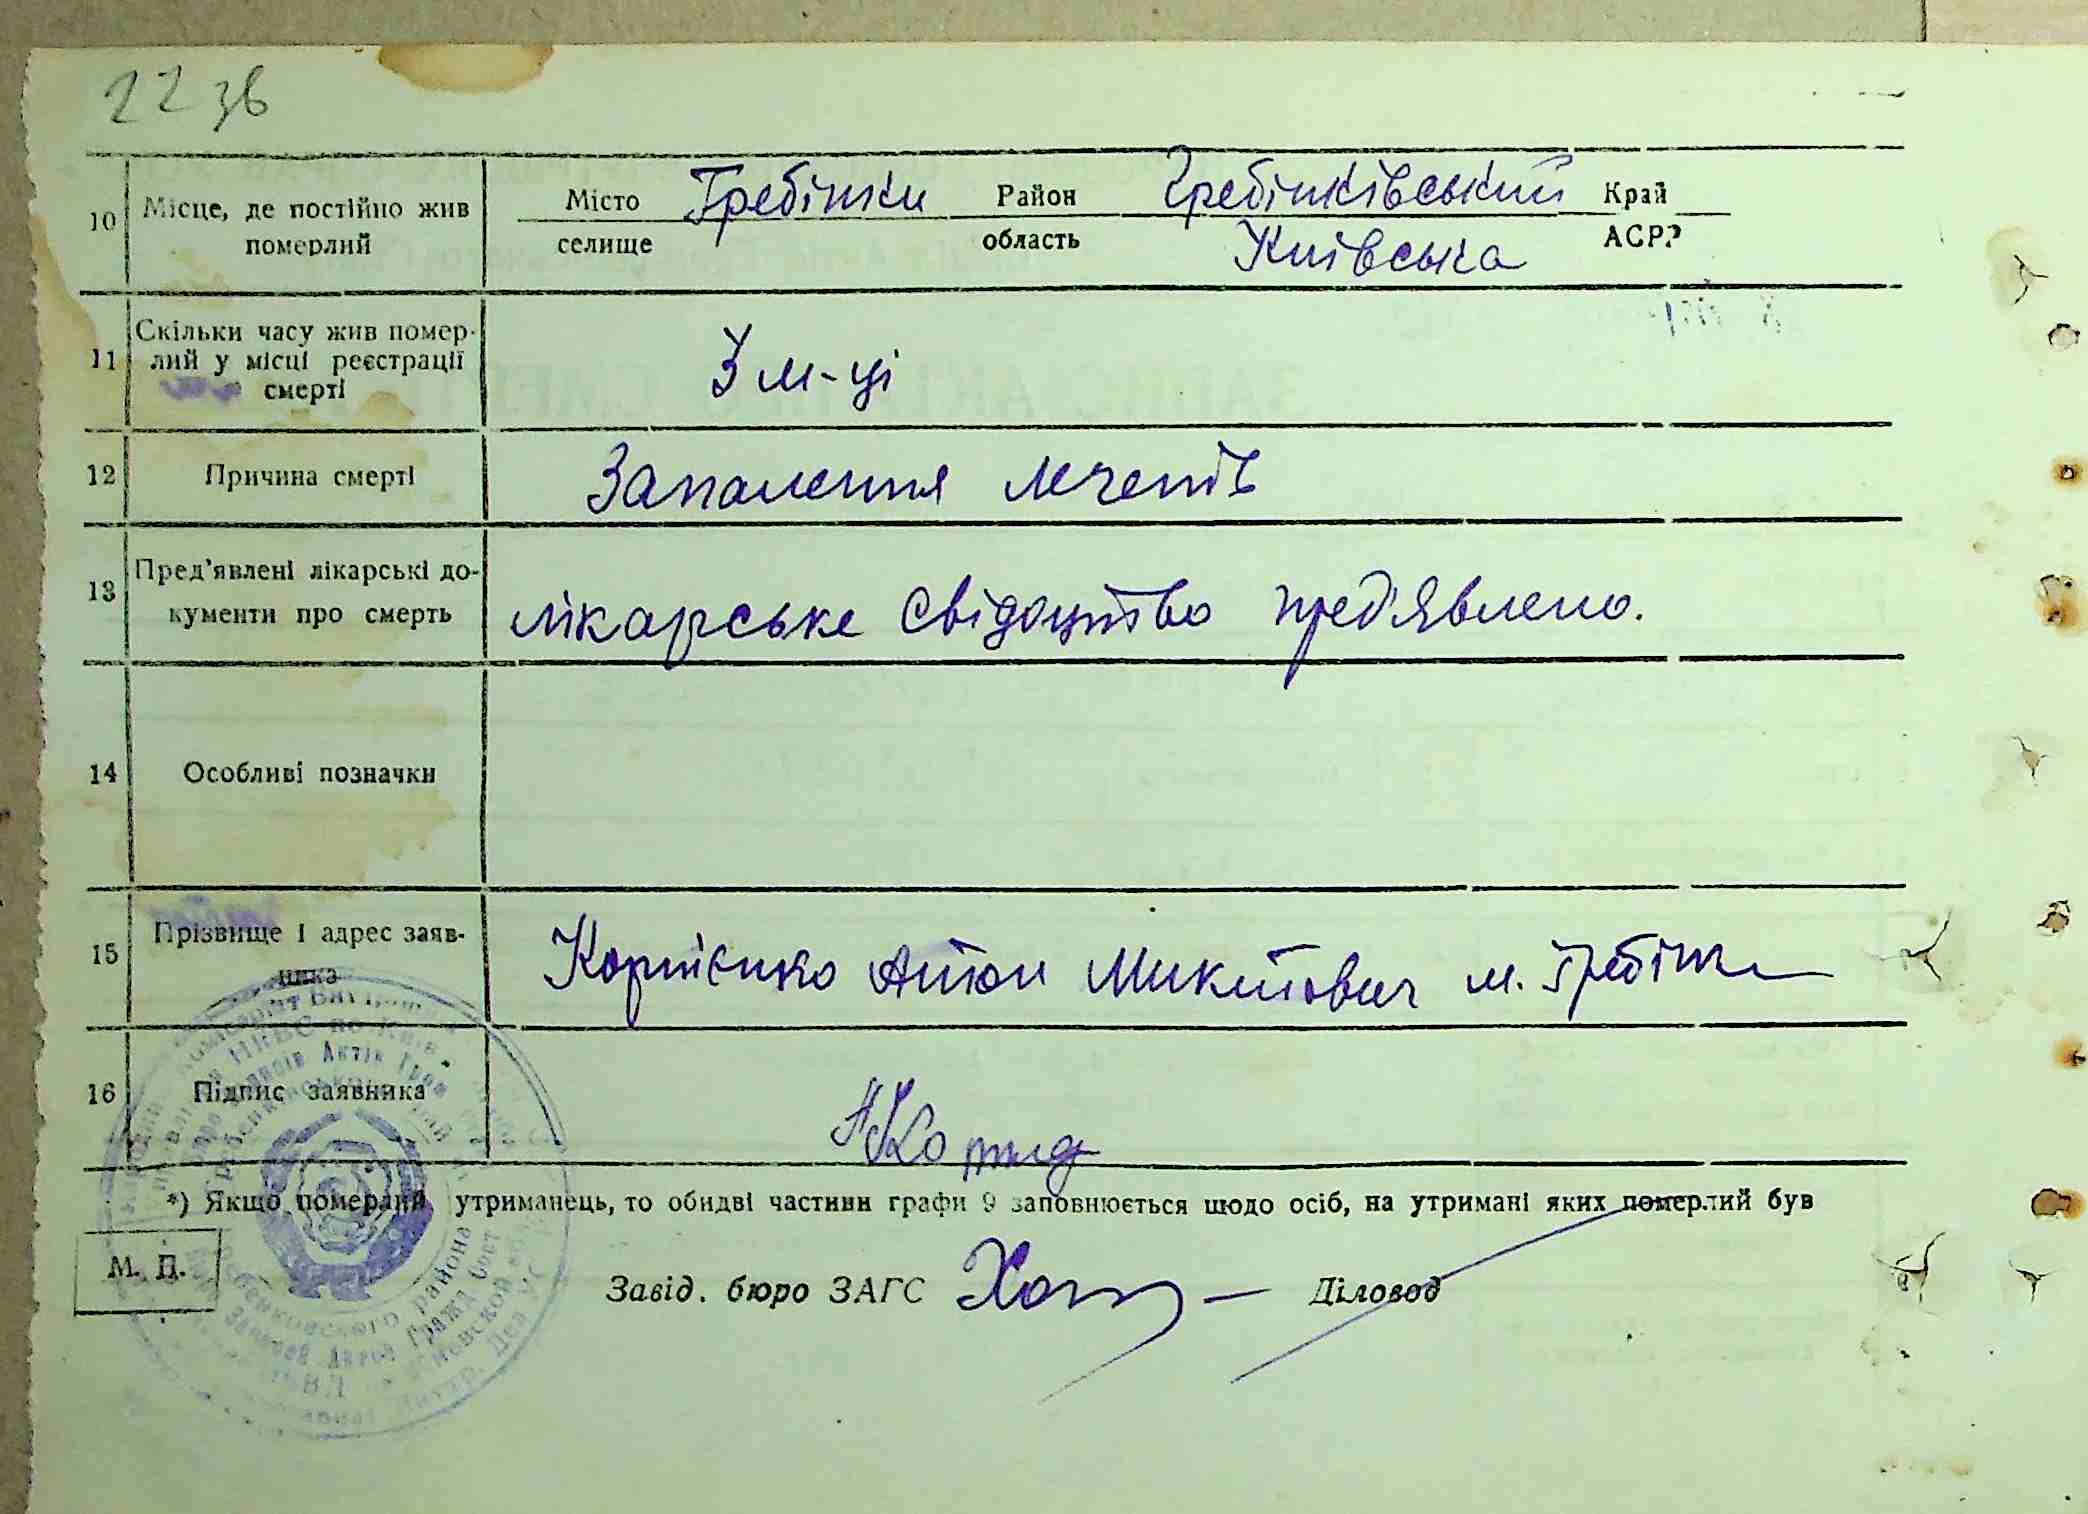 22 зв
10 Місце, де постійно жив померлий Місто селище Гребінки Район область Гребінківський Київська Край АСРР
11 Скільки часу жив помер-
лий у місці реєстрації
смерті 3 м-ці
12 Причина смерті Запалення легенів
13 Пред'явлені лікарські до-
кументи про смерть лікарське свідоцтво пред'явлено.
14 Особливі позначки
15 Прізвище і адрес заяв-
ника Корнієнко Антон Микитович м. Гребінки
16 Підпис заявника
*) Якщо померлий, утриманець, то обидві частини графи 9 заповнюється щодо осіб, на утримані яких померлий був
М. П.
Завід. бюро ЗАГС Діловод